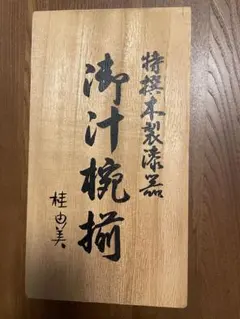 特撰木製漆器
御汁椀揃
桂由美